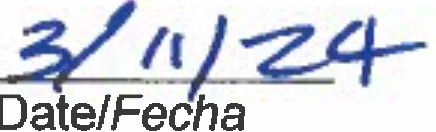 3/11/24
Date/Fecha